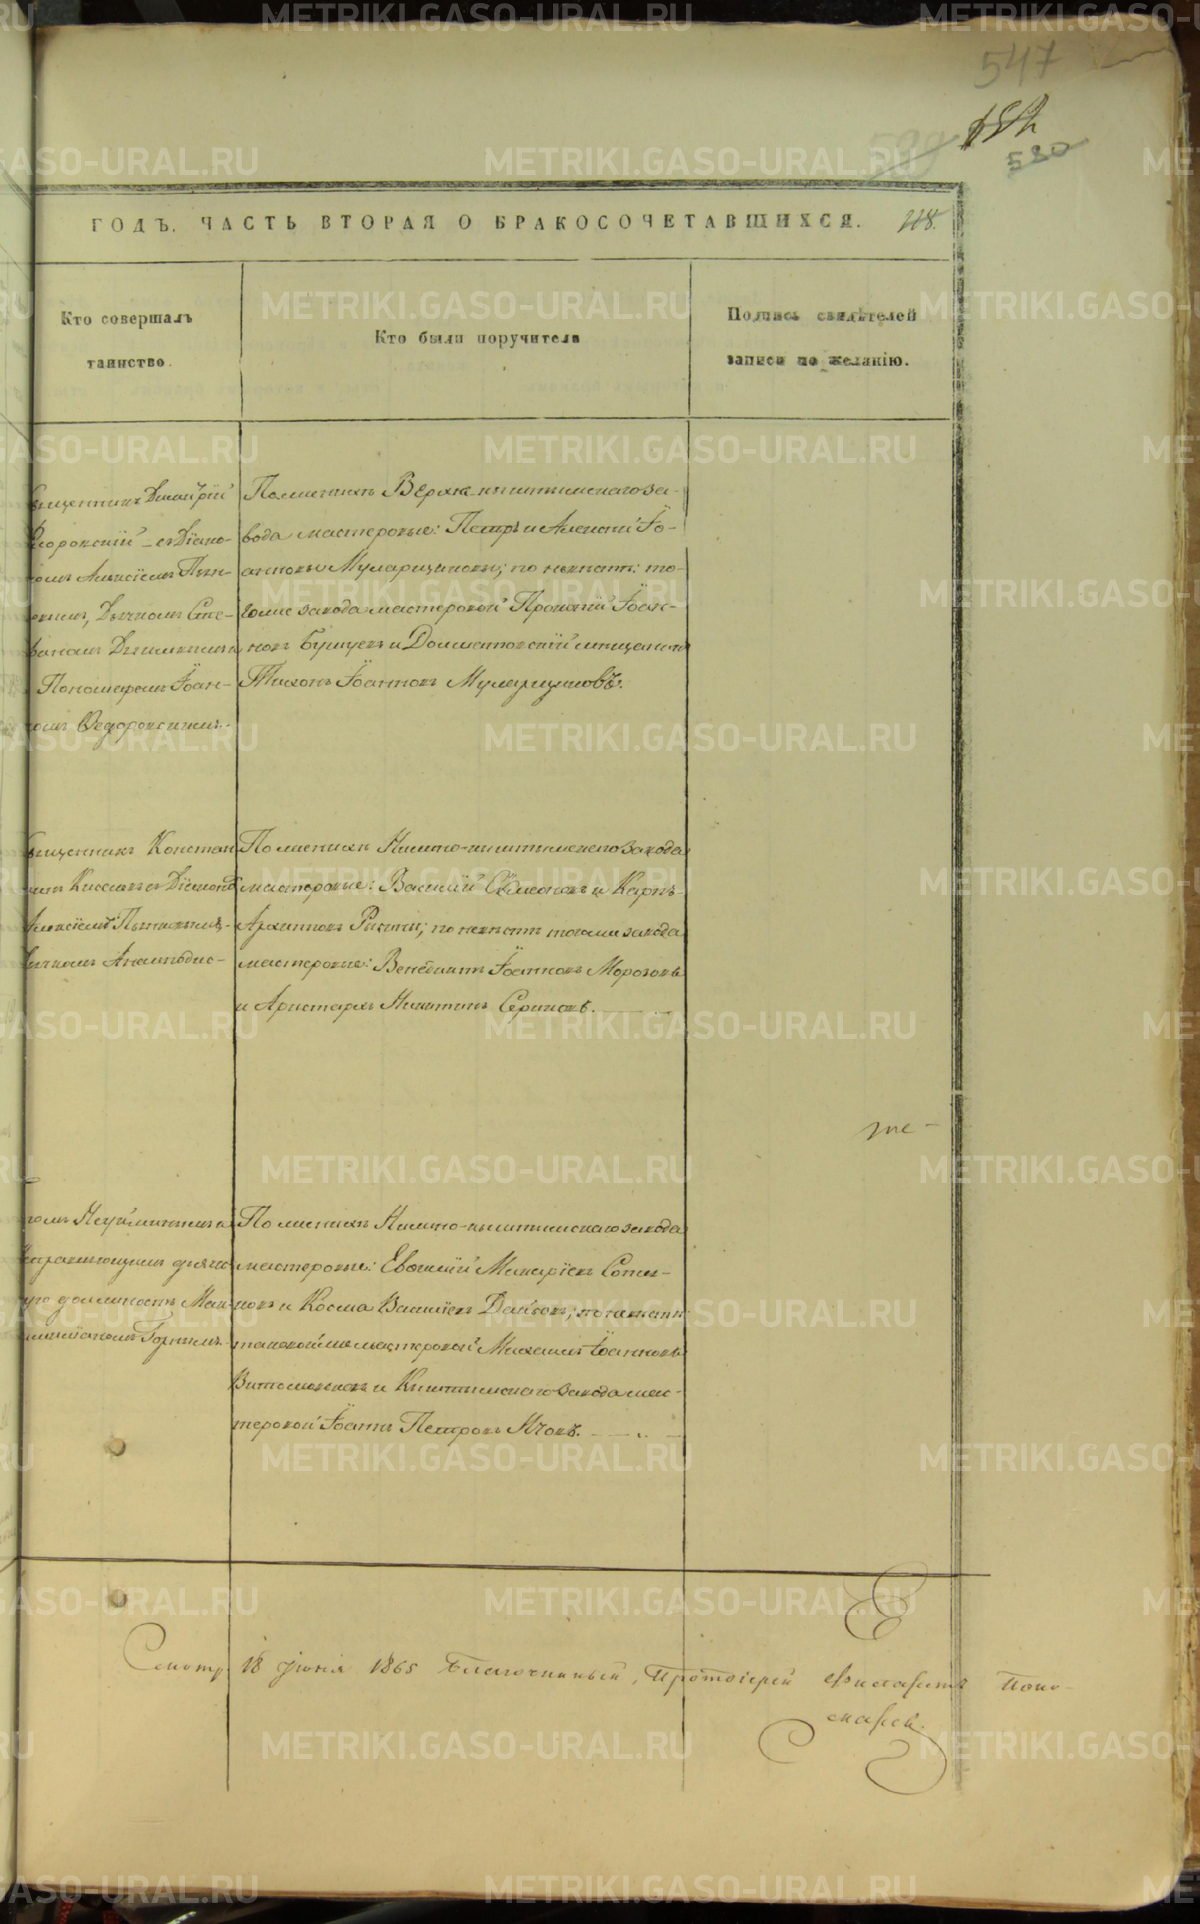 547
580
ГОДЪ. ЧАСТЬ ВТОРАЯ О БРАКОСОЧЕТАВШИХСЯ.
118.
Кто совершалъ
таинство.
Кто были поручители
Подпись свидѣтелей
записи по желанію.
Священникъ Димитрій
Ѳедоровскій съ Діако-
номъ Алексіемъ Пьян-
ковымъ, Дьячкомъ Сте-
фаномъ
Пономаремъ Іоан-
номъ Ѳедоровскимъ.
По женихѣ Верхне-кыштымскаго за-
вода мастеровые: Петръ и Алексѣй Іо-
анновы Муларщиковы; по невѣстѣ: то-
гоже завода мастеровой Прокопій Іоан-
новъ Бунуевъ и Долматовскій мѣщанинъ
Тихонъ Іоанновъ Муларщиковъ.
Священникъ Констан
съ Діакономъ
Алексіемъ Пьянковымъ,
По женихѣ Нижне-кыштымскаго завода
мастеровые: Василій Симеоновъ и Карпъ
Архиповъ; по невѣстѣ тогоже завода
мастеровые: Венедиктъ Іоанновъ Морозовъ
и Аристархъ Никитинъ
номъ Неуйминымъ и
исправляющимъ дьячко
ую должность Мак
симиліаномъ Горнымъ.
По женихѣ Нижне-кыштымскаго завода
мастеровые: Евѳимій Макаріевъ Сотни-
ковъ и Косма Василіевъ Дайбовъ; по невѣстѣ
таковой же мастеровой Михаилъ Іоанновъ
и Кыштымскаго завода мас-
теровой Іоаннъ Петровъ
же-
18 Іюня 1865 Благочинный, Протоіерей Филаретъ Поно-
маревъ.
METRIKI.GASO-URAL.RU